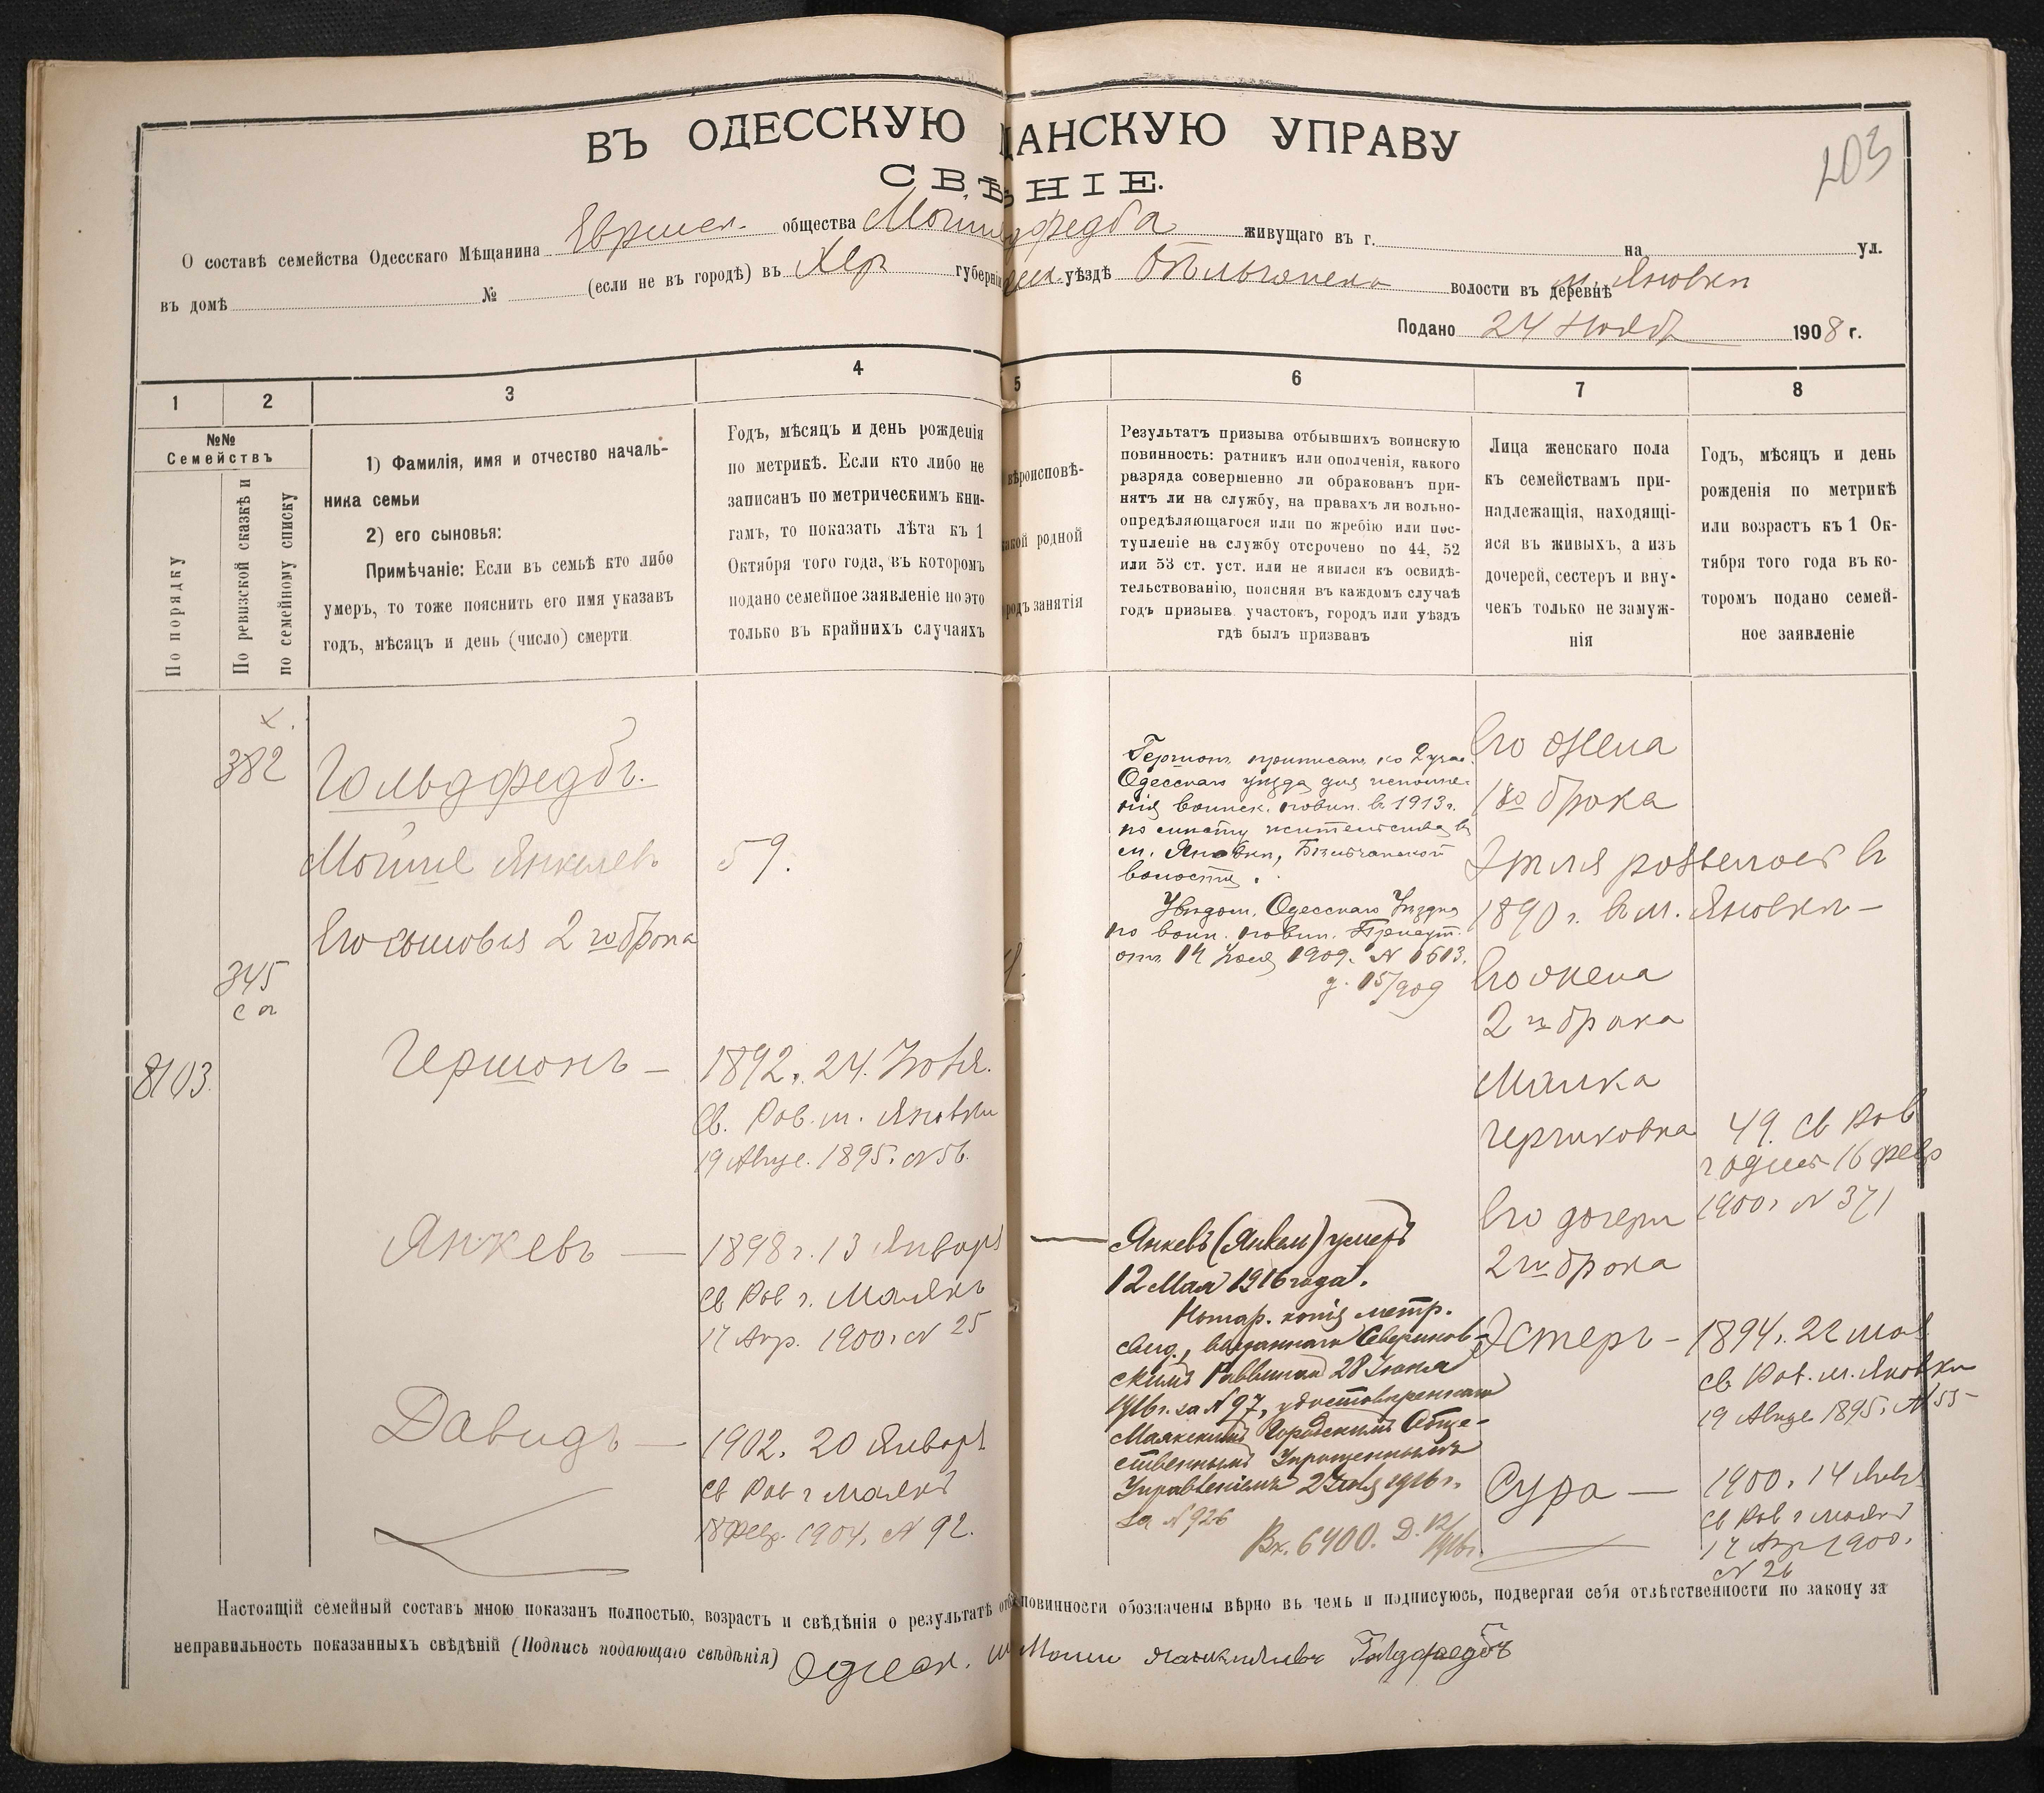 ВЪ ОДЕССКУЮ ЩАНСКУЮ УПРАВУ
СВѢ НІЕ.
403
О составѣ семейства Одесскаго Мѣщанина Еврейск. общества живущаго въ г. на ул.
въ домѣ № (если не въ городѣ) въ Хер губерніи уѣздѣ Бѣльчанск волости въ деревнѣ м. Яновки
Подано 24 Ноябр 1908 г.
1
2
3
4
5
6
7
8
№№
Семействъ
По порядку
По ревизской сказкѣ и
по семейному списку
1) Фамилія, имя и отчество началь-
ника семьи
2) его сыновья:
Примѣчаніе: Если въ семьѣ кто либо
умеръ, то тоже пояснить его имя указавъ
годъ, мѣсяцъ и день (число) смерти
Годъ, мѣсяцъ и день рожденія
по метрикѣ. Если кто либо не
записанъ по метрическимъ кни-
гамъ, то показать лѣта къ 1
Октября того года, въ которомъ
подано семейное заявленіе но это
только въ крайнихъ случаяхъ
вѣроисповѣ-
родной
родъ занятія
Результатъ призыва отбывшихъ воинскую
повинность: ратникъ или ополченія, какого
разряда совершенно ли обракованъ при-
нятъ ли на службу, на правахъ ли вольно-
опредѣляющагося или по жребію или пос-
тупленіе на службу отсрочено по 44, 52
или 53 ст. уст. или не явился къ освидѣ-
тельствованію, поясняя въ каждомъ случаѣ
годъ призыва участокъ, городъ или уѣздъ
гдѣ былъ призванъ
Лица женскаго пола
къ семействамъ при-
надлежащія, находящі-
яся въ живыхъ, а изъ
дочерей, сестеръ и вну-
чекъ только не замуж-
нія
Годъ, мѣсяцъ и день
рожденія по метрикѣ
или возрастъ къ 1 Ок-
тября того года въ ко-
торомъ подано семей-
ное заявленіе
х.
382
Гольдфедбъ.
Мойше Янкелевъ 59.
Его сыновья 2 го брака
345
са
8103.
Гершонъ — 1892. 24. Іюня.
Св. Рав. м. Яновки
19 Авгус. 1895. N 56.
Янкевъ — 1898 г. 13 Январ
св Рав г. Маякъ
17 Апр. 1900. N 25
Давидъ — 1902. 20 Январ
св Рав г Маякъ
18 Февр. 1904. N 92.
Гершонъ приписанъ ко 2 учас.
Одесскаго уѣзда для исполне-
нія воинск. повин. въ 1913 г.
по мѣсту жительства въ
м. Яновки, Бѣльчанской
волости.
Увѣдом. Одесскаго Уѣздна
по воин. повин. Присут.
отъ 14 Іюля 1909. N 1613.
д. 15/909
Янкевъ (Янкель) умеръ
12 Мая 1916 года.
Нотар. копія метр.
свид., выданнаго Севериновскимъ
Раввиномъ 28 Іюня
1916 г. за N 97, удостовѣренная
Маякскимъ Городскимъ Обще-
ственнымъ Упрощеннымъ
Управленіемъ 2 Іюля 1916 г.
за N 926
Вх. 6400. Д. 12/1916 г.
Его жена
1 го брака
Этля развелась въ
1890 г. въ м. Яновкѣ —
Его жена
2 го брака
Малка
Гершковна 49. Св Рав
г Одес 16 февр
1900. N 371
Его дочери
2 го брака
Эстеръ — 1894. 22 мая
св Рав. м. Яновки
19 Авгус 1895. N 55
Сура — 1900. 14 Янв.
св Рав г Маякъ
17 Апр 1900.
N 26
Настоящій семейный составъ мною показанъ полностью, возрастъ и свѣдѣнія о результатѣ повинности обозначены вѣрно въ чемъ и подписуюсь, подвергая себя отвѣтственности по закону за
неправильность показанныхъ свѣдѣній (Подпись подающаго свѣдѣнія) Одесск. м Моше